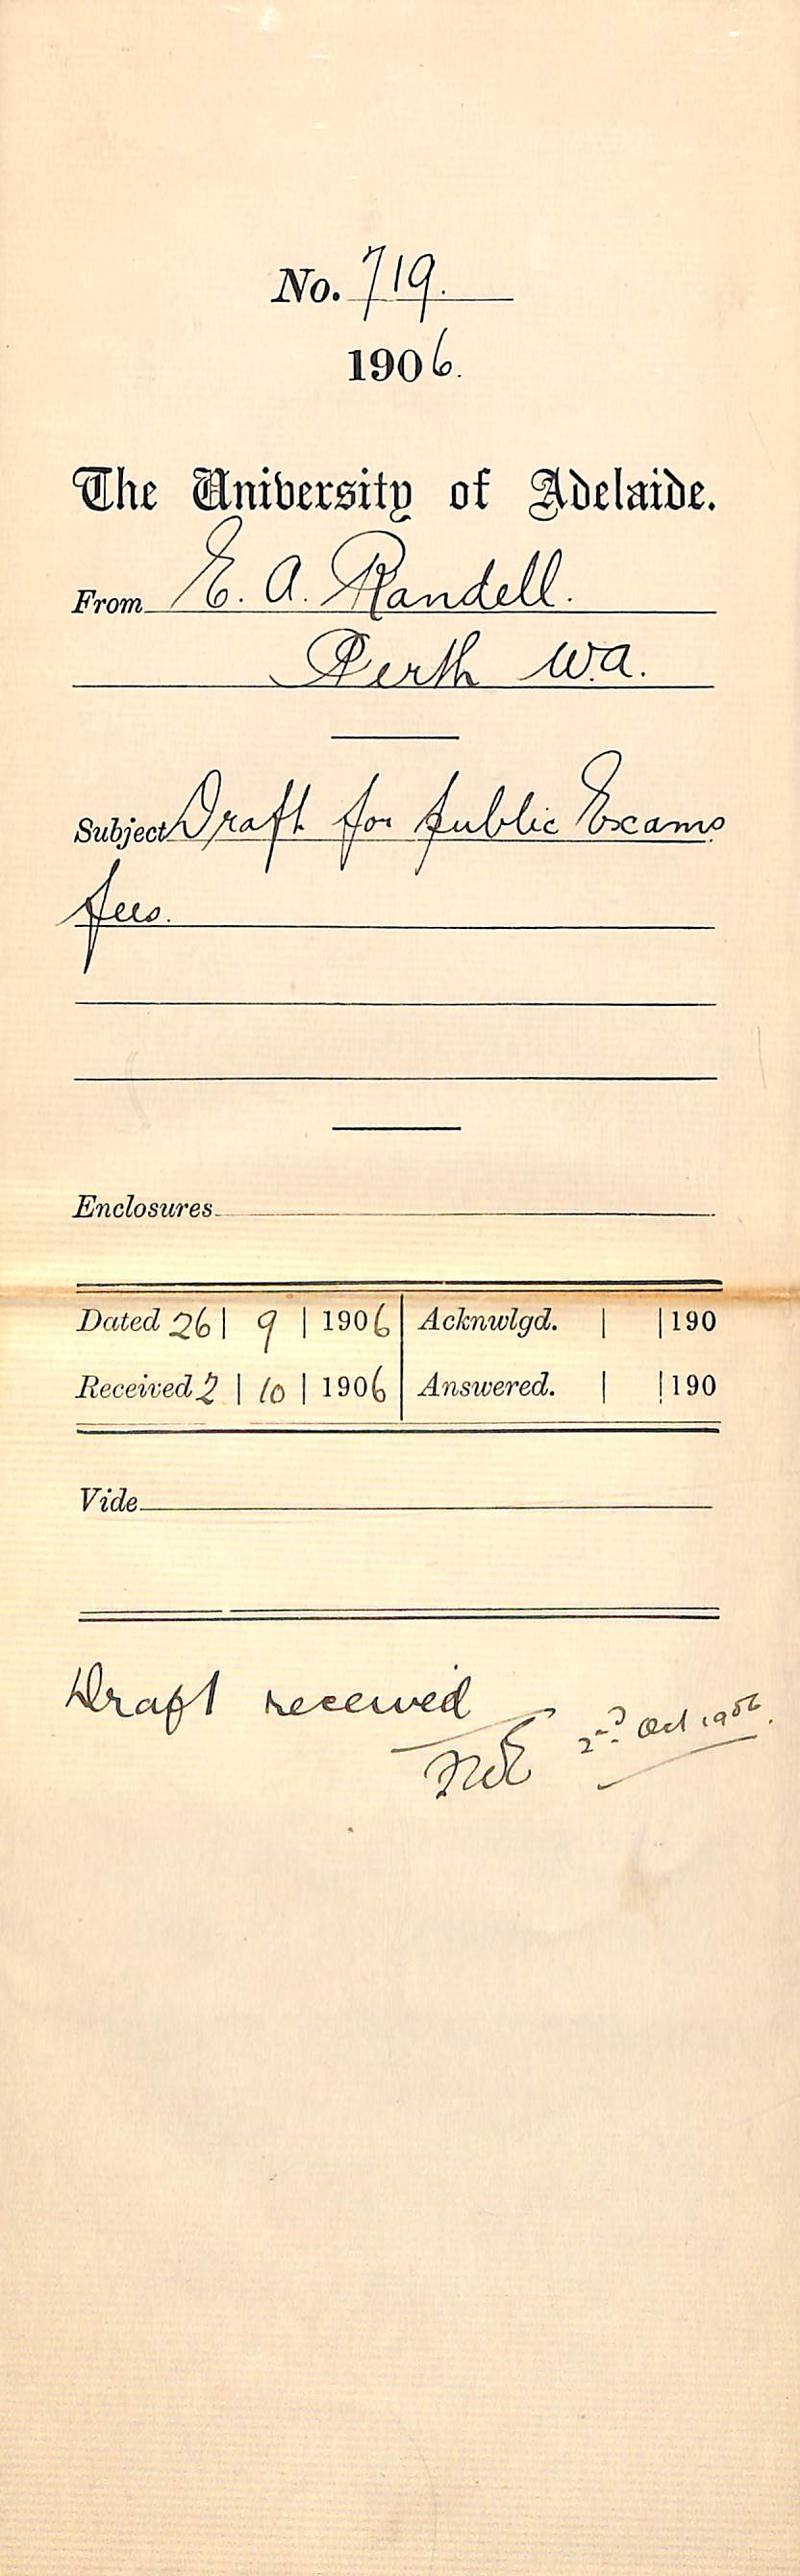 No. 719.
1906.
The University of Adelaide.
From E. A. Randell.
Perth W.A.
Subject Draft for public Exams
fees.
Enclosures
Dated 26 | 9 | 1906 | Acknwlgd. | | 190
Received 2 | 10 | 1906 | Answered. | | 190
Vide
Draft received
2nd Oct 1906.